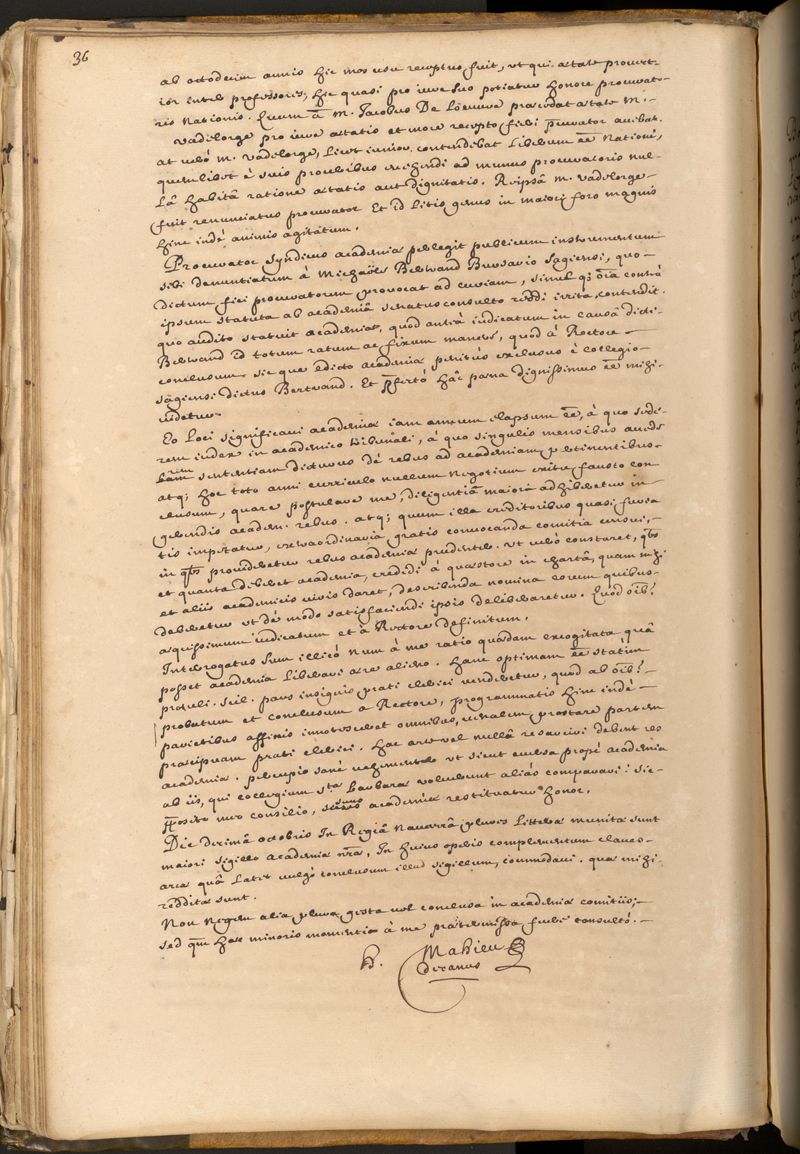 36
ab octodecim annis hic mos usu receptus fuit, ut qui aetate provecti
ior inter professores, hic quasi pro iure suo potiatur honore procurato-
ris nationis. Quum M. Jacobus De Loeuure praecedat aetate M.
Vadelorge pro iure aetatis et more recepto sibi procurator
at verò M. Vadelorge, licet iunior, contendebat liberum eē Nationi,
quemlibet è suis proceribus eligendi ad munus procuratoris nul-
lâ habitâ ratione aetatis aut dignitatis. Reipsâ M. Vadelorge
fuit renunciatus procurator Et id litis genus in maiori foro magnis
hinc indé animis agitatum.
Procurator syndicus academiae perlegit publicum instrumentum
sibi denuntiatum à Michaële Bertrand Bursario sagiensi, quo
dictum fisci procuratorem provocat ad curiam, simul q; oīa contrà
ipsum statuta ab academiâ senatusconsulto reddi irrita contendit.
quo audito statuit academia, quod anteà iudicatum in causâ dicti
Bertrand id totum ratum ac fixum manere, quod à Rectore
conclusum. sic que edicto academiae penitùs exclusus è collegio
sagiensi dictus Bertrand. Et certò hâc paena dignissimus eē mihi
videtur.
Eo Loci significavi academiae iam annum elapsum eē, à quo sede-
rem iudex in academico tribunali, à quo singulis mensibus audi-
rem sententiam dicturus de rebus ad academiam pertinentibus
atq; hoc toto anni curriculo nullum negotium exitu fausto con
clusum, quare postulare me, diligentiā maiorē adhiberetur in
gerendis academ. rebus. atq; quum illa creditoribus quasi furia
tis impetatur, extraordinaria gratis convocanda comitia censui,
in qbs provideretur rebus academiae prudenter. Ut verò constaret, qbs
et quanta deberet academia, credidi à quaestore in chartâ, quam mihi
et aliis academicis viris daret, describenda nomina eorum quibus
deberetur ut dé modo satisfaciendi ipsis deliberaretur. Quod oīb9
aequissimum iudicatum et à Rectore definitum.
Interrogatus sum illicò num à me ratio quaedam excogitata quâ
posset academia liberari aere alieno. Hanc optimam eē statim
protuli. scil. pars insignis prati clerici venderetur, quod ab oīb9
probatum et conclusum a Rectore, programmatis hinc indé
parietibus affixis innotesceret omnibus, venalem prostare partem
praecipuam prati clerici. Hac arte vel nullâ resarciri debent res
academiae. percupio sanè vehementer ut sicut excelsa propè academia
ab iis, qui collegium stae Barbarae voluerunt aliàs comparari: sic
posito meo consilio, suus academiae restituatur honor.
Die decimâ octobris In Regiâ Navarrâ plures litterae munitae sunt
maiori sigillo academiae nrae, In huius operis complementum claves
arcae quâ latet vulgò conclusum illud sigillum, commodavi. quae mihi
redditae sunt.
Non negem alia plura gesta vel conclusa in academiae comitiis;
sed qm haec minoris momenti à me praetermissa fuere consultò.
h. Mahieu
Decanus